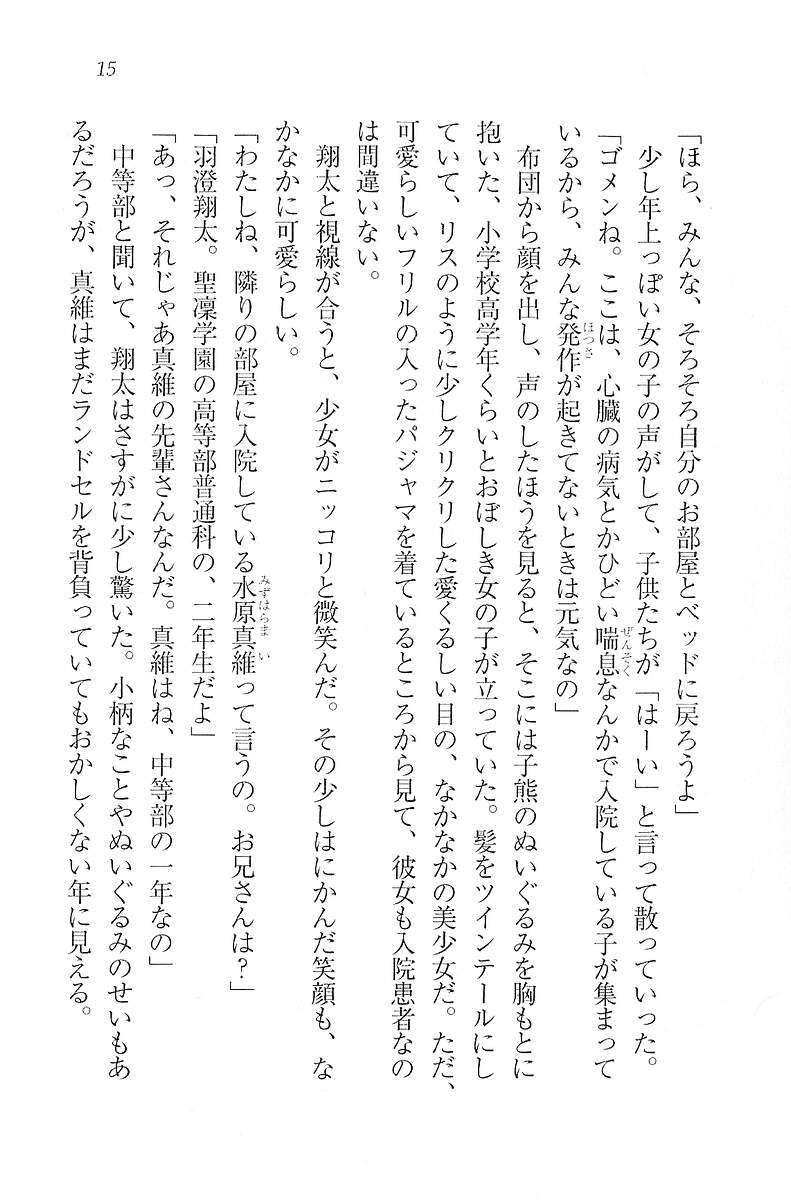 15
「ほら、みんな、そろそろ自分のお部屋とベッドに戻ろうよ」
少し年上っぽい女の子の声がして、子供たちが「はーい」と言って散っていった。
「ゴメンね。ここは、心臓の病気とかひどい喘息なんかで入院している子が集まって
ぜんそく
いるから、みんな発作が起きてないときは元気なの」
ほっさ
布団から顔を出し、声のしたほうを見ると、そこには子熊のぬいぐるみを胸もとに
抱いた、小学校高学年くらいとおぼしき女の子が立っていた。髪をツインテールにし
ていて、リスのように少しクリクリした愛くるしい目の、なかなかの美少女だ。ただ、
可愛らしいフリルの入ったパジャマを着ているところから見て、彼女も入院患者なの
は間違いない。
翔太と視線が合うと、少女がニッコリと微笑んだ。その少しはにかんだ笑顔も、な
かなかに可愛らしい。
「わたしね、隣りの部屋に入院している水原真維って言うの。お兄さんは？」
みずはらまい
「羽澄翔太。聖凜学園の高等部普通科の、二年生だよ」
「あっ、それじゃあ真維の先輩さんなんだ。真維はね、中等部の一年なの」
中等部と聞いて、翔太はさすがに少し驚いた。小柄なことやぬいぐるみのせいもあ
るだろうが、真維はまだランドセルを背負っていてもおかしくない年に見える。